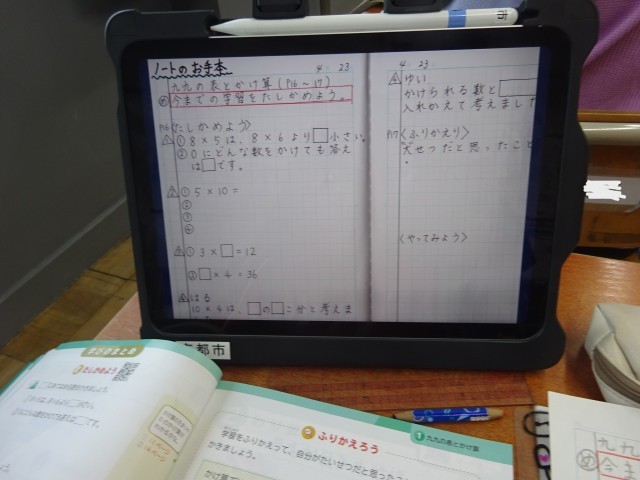 市
ノートのお手本
4. 23
九九の表とかけ算(P16~17)
め 今までの学習をたしかめよう。
P16 〈たしかめよう〉
① 8×5は、8×6より□小さい。
② 0にどんな数をかけても答え
は□です。
① 5×10=
②
③
④
① 3×□=12
② □×4=36
はる
10×4は、□の□こ分と考えま
4. 23
ゆい
かけられる数と
入れかえて考えました
P17 〈ふりかえり〉
大せつだと思ったこと
〈やってみよう〉
京都市
学びのまとめ
たしかめよう
ふりかえろう
1 九九の表とかけ算
学習をふりかえって、自分がたいせつだと思ったこ
かきましょう。
かけ算
九九
め 今ま